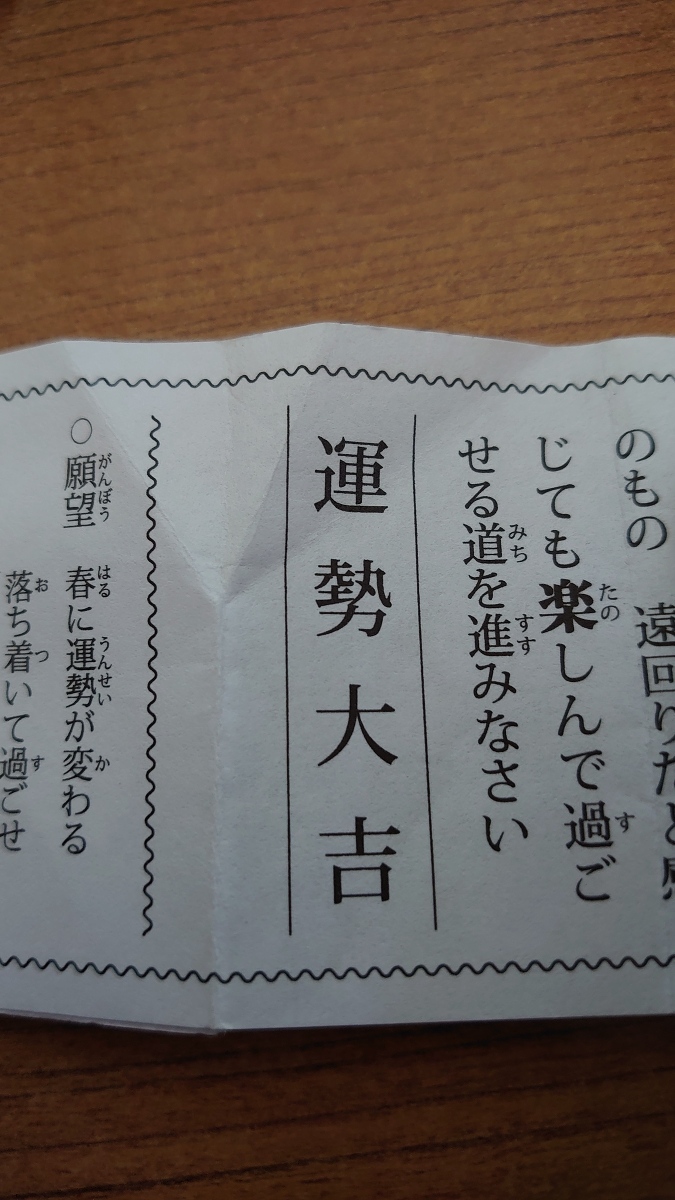 のもの 遠回りだと感
じても楽しんで過ご
せる道を進みなさい
運勢大吉
○願望 春に運勢が変わる
落ち着いて過ごせ